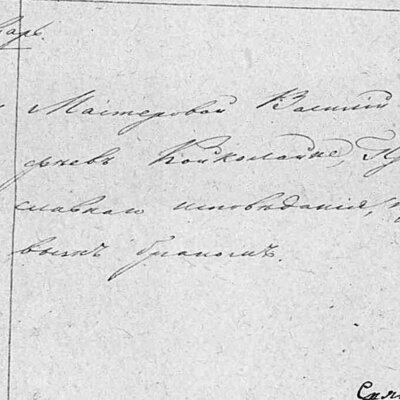 варь.
Мастеровой Василий
фневъ Койколайне, Пр
славнаго исповѣданія, п
вымъ бракомъ.